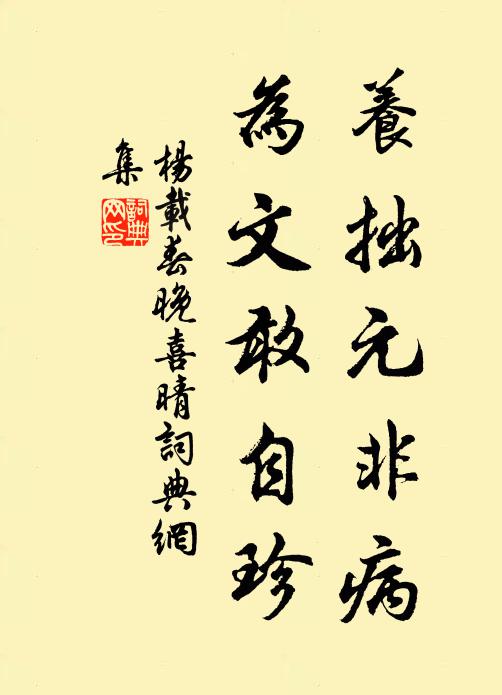 養拙元非病
為文敢自珍
楊載春晚喜晴詞典網
集
詞典
网印